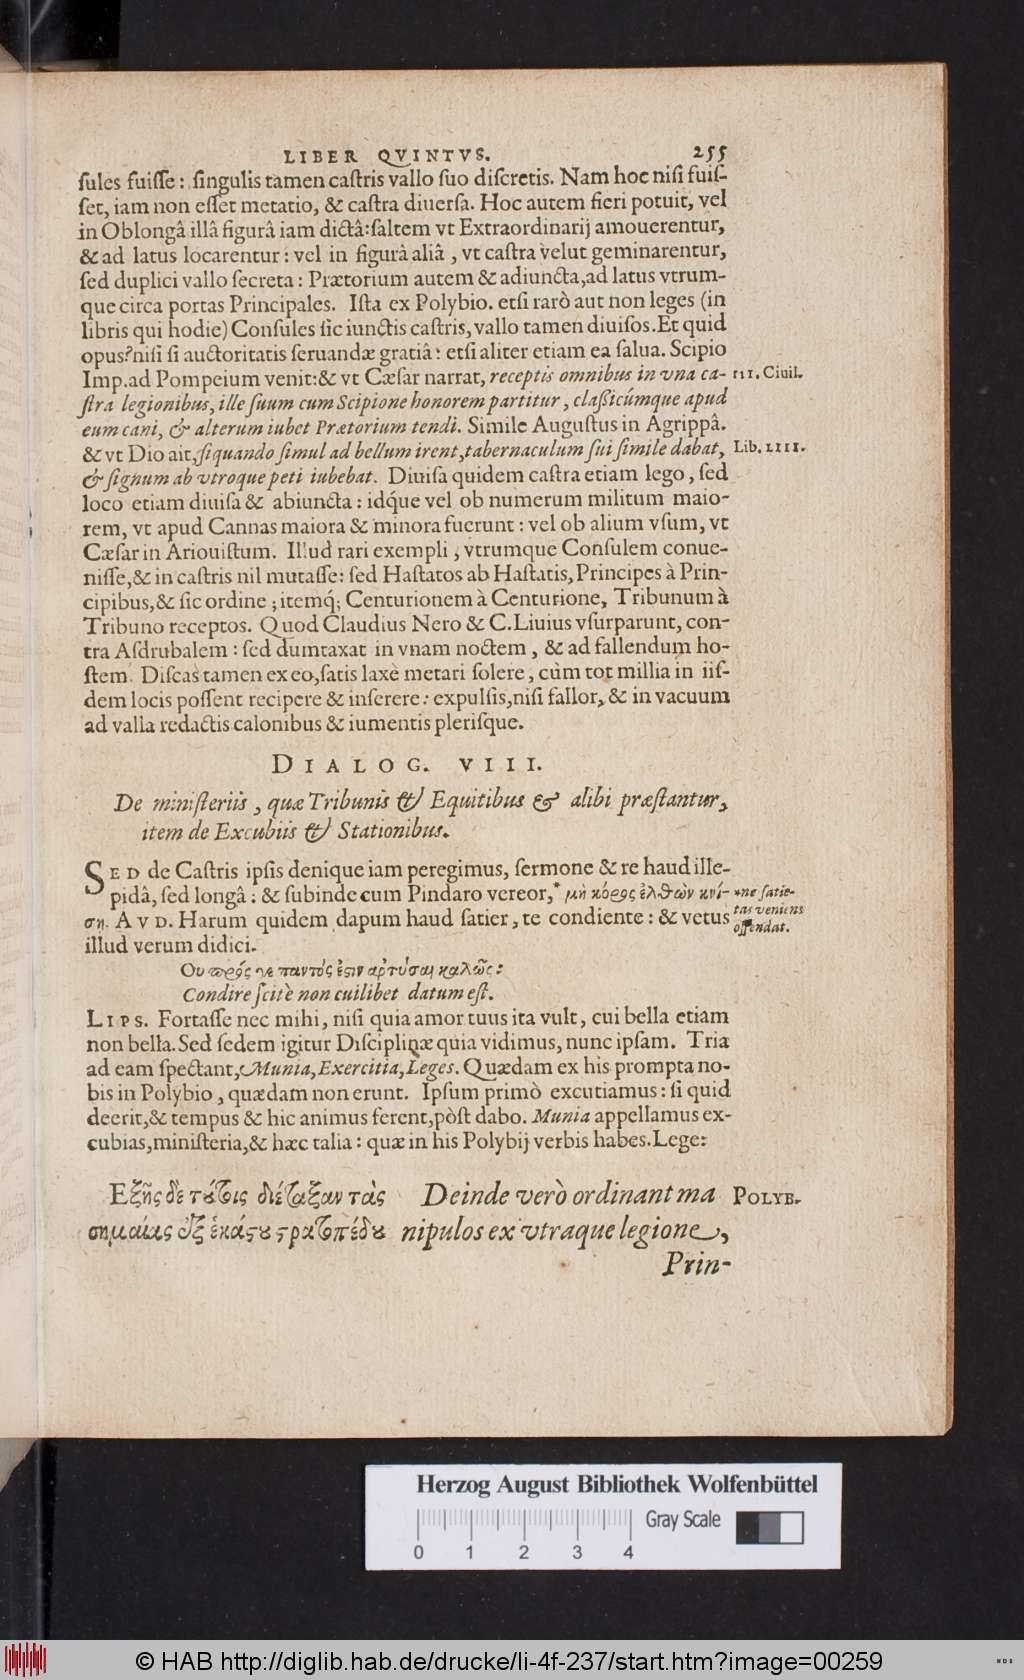 LIBER QVINTVS. 255
sules fuisse: singulis tamen castris vallo suo discretis. Nam hoc nisi fuis-
set, iam non esset metatio, & castra diuersa. Hoc autem fieri potuit, vel
in Oblongâ illâ figurâ iam dictâ: saltem vt Extraordinarij amouerentur,
& ad latus locarentur: vel in figurâ aliâ, vt castra velut geminarentur,
sed duplici vallo secreta: Prætorium autem & adiuncta, ad latus vtrum-
que circa portas Principales. Ista ex Polybio. etsi rarò aut non leges (in
libris qui hodie) Consules sic iunctis castris, vallo tamen diuisos. Et quid
opus? nisi si auctoritatis seruandæ gratiâ: etsi aliter etiam ea salua. Scipio
Imp. ad Pompeium venit: & vt Cæsar narrat, receptis omnibus in vna ca- III. Ciuil.
stra legionibus, ille suum cum Scipione honorem partitur, classicúmque apud
eum cani, & alterum iubet Prætorium tendi. Simile Augustus in Agrippâ.
& vt Dio ait, siquando simul ad bellum irent, tabernaculum sui simile dabat, Lib. LIIII.
& signum ab vtroque peti iubebat. Diuisa quidem castra etiam lego, sed
loco etiam diuisa & abiuncta: idq́ue vel ob numerum militum maio-
rem, vt apud Cannas maiora & minora fuerunt: vel ob alium vsum, vt
Cæsar in Ariouistum. Illud rari exempli, vtrumque Consulem conue-
nisse, & in castris nil mutasse: sed Hastatos ab Hastatis, Principes à Prin-
cipibus, & sic ordine; itemq́; Centurionem à Centurione, Tribunum à
Tribuno receptos. Quod Claudius Nero & C. Liuius vsurparunt, con-
tra Asdrubalem: sed dumtaxat in vnam noctem, & ad fallendum ho-
stem. Discas tamen ex eo, satis laxè metari solere, cùm tot millia in iis-
dem locis possent recipere & inserere: expulsis, nisi fallor, & in vacuum
ad valla redactis calonibus & iumentis plerisque.
DIALOG. VIII.
De ministeriis, quæ Tribunis & Equitibus & alibi præstantur,
item de Excubiis & Stationibus.
SED de Castris ipsis denique iam peregimus, sermone & re haud ille-
pidâ, sed longâ: & subinde cum Pindaro vereor, * μὴ κόρος ἐλθὼν κνί- *ne satie-
ση. AVD. Harum quidem dapum haud satier, te condiente: & vetus tas veniens
illud verum didici. offendat.
Ου πρός γε παντός ἐστιν αρτύσαι καλῶς:
Condire scitè non cuilibet datum est.
LIPS. Fortasse nec mihi, nisi quia amor tuus ita vult, cui bella etiam
non bella. Sed sedem igitur Disciplinæ quia vidimus, nunc ipsam. Tria
ad eam spectant, Munia, Exercitia, Leges. Quædam ex his prompta no-
bis in Polybio, quædam non erunt. Ipsum primò excutiamus: si quid
deerit, & tempus & hic animus ferent, pòst dabo. Munia appellamus ex-
cubias, ministeria, & hæc talia: quæ in his Polybij verbis habes. Lege:
Εξῆς δὲ τούτοις διέταξαν τὰς Deinde verò ordinant ma POLYB.
σημαίας ἐξ ἑκάστου στρατοπέδου nipulos ex vtraque legione,
Prin-
Herzog August Bibliothek Wolfenbüttel
Gray Scale
0 1 2 3 4
© HAB http://diglib.hab.de/drucke/li-4f-237/start.htm?image=00259